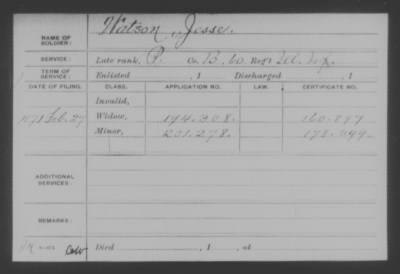 NAME OF SOLDIER: Watson, Jesse.
SERVICE: Late rank, P. Co. B, 60 Reg't Ill. Inf.
TERM OF SERVICE: Enlisted , 1 Discharged , 1
DATE OF FILING. CLASS. APPLICATION NO. LAW. CERTIFICATE NO.
Invalid,
1871 Feb. 27 Widow, 194.308.
Minor, 201.278.
ADDITIONAL SERVICES:
REMARKS:
Died , 1 , at